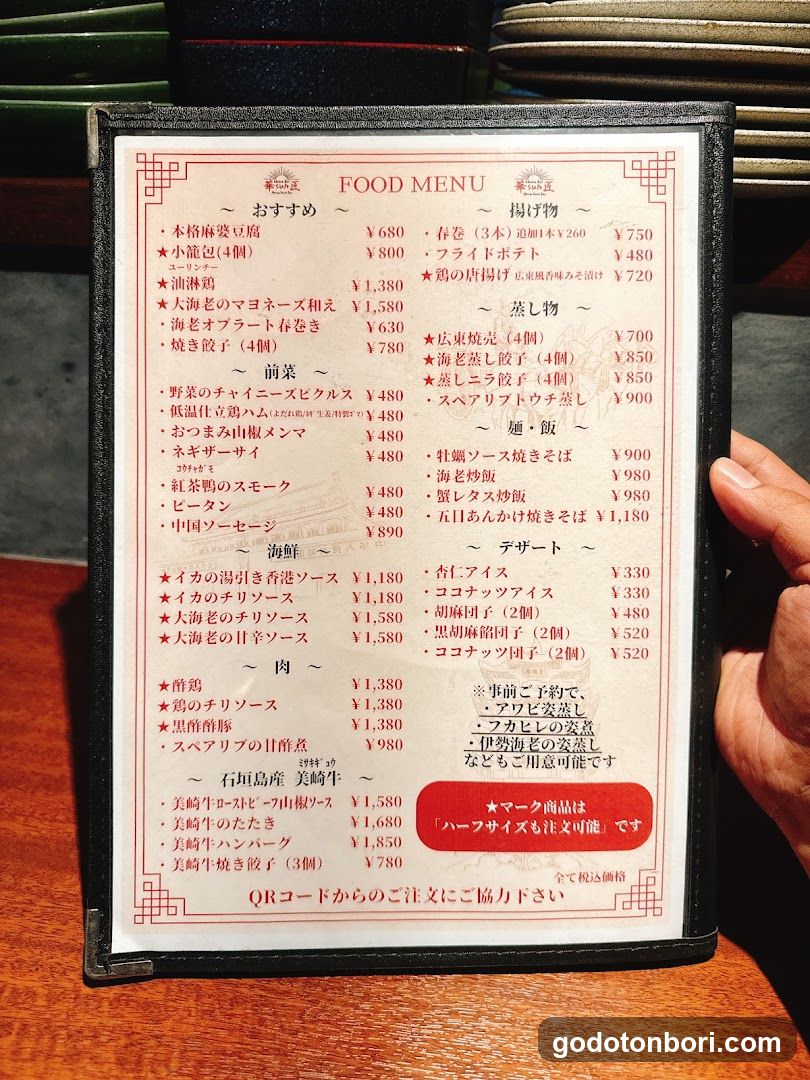 FOOD MENU
～ おすすめ ～
・本格麻婆豆腐 ¥680
★小籠包(4個) ¥800
ユーリンチー
★油淋鶏 ¥1,380
★大海老のマヨネーズ和え ¥1,580
・海老オブラート春巻き ¥630
・焼き餃子（4個） ¥780
～ 前菜 ～
・野菜のチャイニーズピクルス ¥480
・低温仕立鶏ハム(よだれ鶏/ﾈｷﾞ生姜/特製ｺﾞﾏ) ¥480
・おつまみ山椒メンマ ¥480
・ネギザーサイ ¥480
コウチャガモ
・紅茶鴨のスモーク ¥480
・ピータン ¥480
・中国ソーセージ ¥890
～ 海鮮 ～
★イカの湯引き香港ソース ¥1,180
★イカのチリソース ¥1,180
★大海老のチリソース ¥1,580
★大海老の甘辛ソース ¥1,580
～ 肉 ～
★酢鶏 ¥1,380
★鶏のチリソース ¥1,380
★黒酢酢豚 ¥1,380
・スペアリブの甘酢煮 ¥980
ﾐｻｷｷﾞｭｳ
～ 石垣島産 美崎牛 ～
・美崎牛ﾛｰｽﾄﾋﾞｰﾌ山椒ｿｰｽ ¥1,580
・美崎牛のたたき ¥1,680
・美崎牛ハンバーグ ¥1,850
・美崎牛焼き餃子（3個） ¥780
～ 揚げ物 ～
・春巻（3本）追加1本¥260 ¥750
・フライドポテト ¥480
★鶏の唐揚げ 広東風香味みそ漬け ¥720
～ 蒸し物 ～
★広東焼売（4個） ¥700
★海老蒸し餃子（4個） ¥850
★蒸しニラ餃子（4個） ¥850
・スペアリブトウチ蒸し ¥900
～ 麺・飯 ～
・牡蠣ソース焼きそば ¥900
・海老炒飯 ¥980
・蟹レタス炒飯 ¥980
・五目あんかけ焼きそば ¥1,180
～ デザート ～
・杏仁アイス ¥330
・ココナッツアイス ¥330
・胡麻団子（2個） ¥480
・黒胡麻餡団子（2個） ¥520
・ココナッツ団子（2個） ¥520
※事前ご予約で、
・アワビ姿蒸し
・フカヒレの姿煮
・伊勢海老の姿蒸し
などもご用意可能です
★マーク商品は
「ハーフサイズも注文可能」です
全て税込価格
QRコードからのご注文にご協力下さい
godotonbori.com